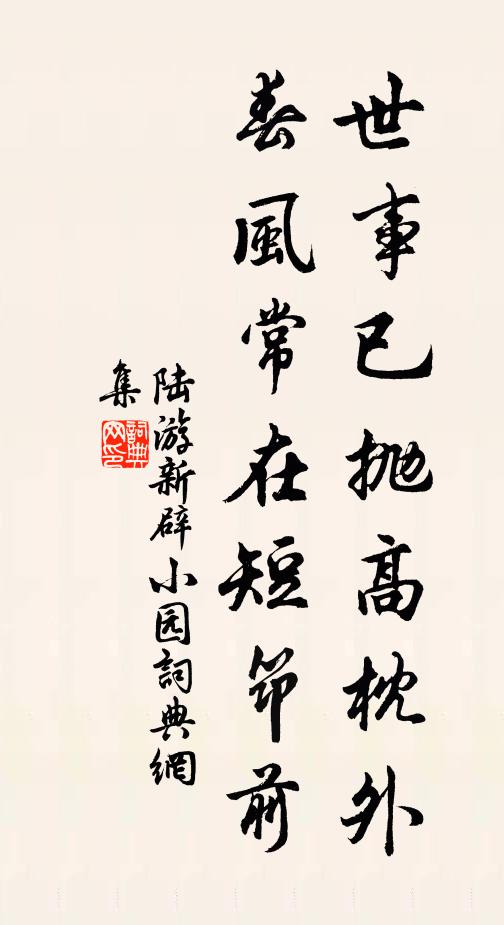 世事已抛高枕外
春風常在短笻前
陆游新辟小园詞典網
集
詞典
网印